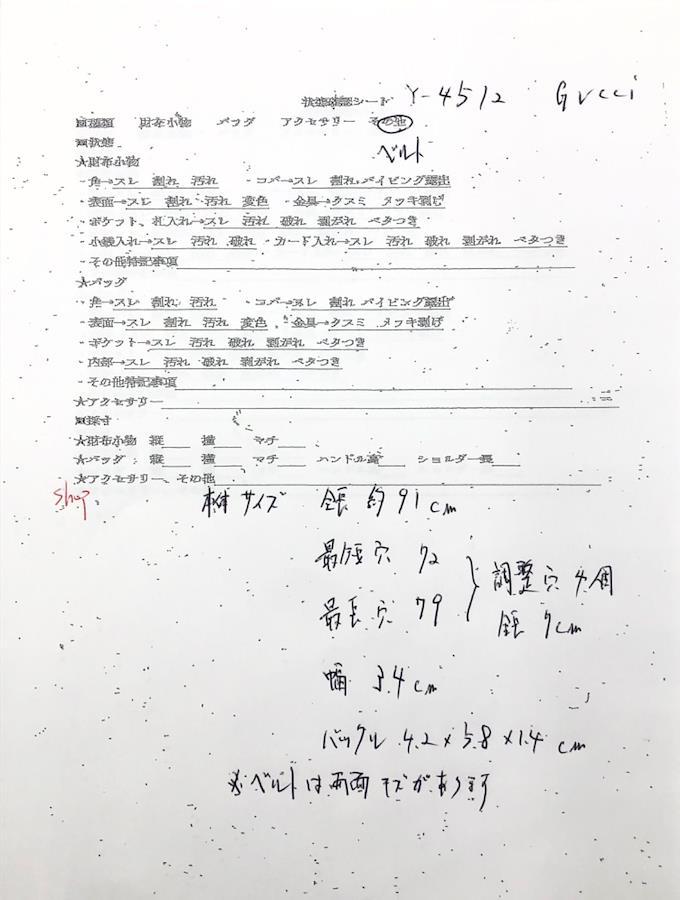 状態確認シート Y-4512 Gucci
■種類 財布小物 バッグ アクセサリー その他
ベルト
■状態
★財布小物
・角→スレ 割れ 汚れ ・コバ→スレ 割れ パイピング露出
・表面→スレ 割れ 汚れ 変色 ・金具→クスミ メッキ剥げ
・ポケット、札入れ→スレ 汚れ 破れ 剥がれ ベタつき
・小銭入れ→スレ 汚れ 破れ ・カード入れ→スレ 汚れ 破れ 剥がれ ベタつき
・その他特記事項
★バッグ
・角→スレ 割れ 汚れ ・コバ→スレ 割れ パイピング露出
・表面→スレ 割れ 汚れ 変色 ・金具→クスミ メッキ剥げ
・ポケット→スレ 汚れ 破れ 剥がれ ベタつき
・内部→スレ 汚れ 破れ 剥がれ ベタつき
・その他特記事項
★アクセサリー
■採寸
★財布小物 縦 横 マチ
★バッグ 縦 横 マチ ハンドル高 ショルダー長
★アクセサリー、その他
shop 本体サイズ 全長 約91cm
最短穴 72
調整穴 4個
最長穴 79
全長 7cm
幅 3.4cm
バックル 4.2×5.8×1.4cm
※ベルトは両面キズがあります